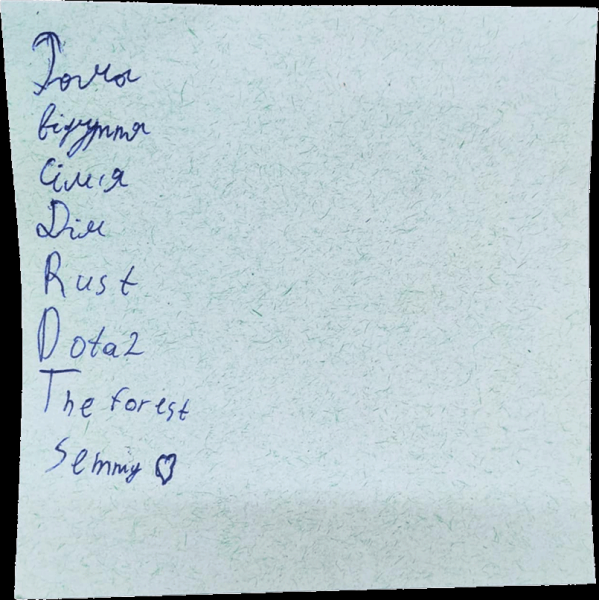 Рома
відчуття
Сім'я
Дім
Rust
Dota2
The forest
Semmy ♡